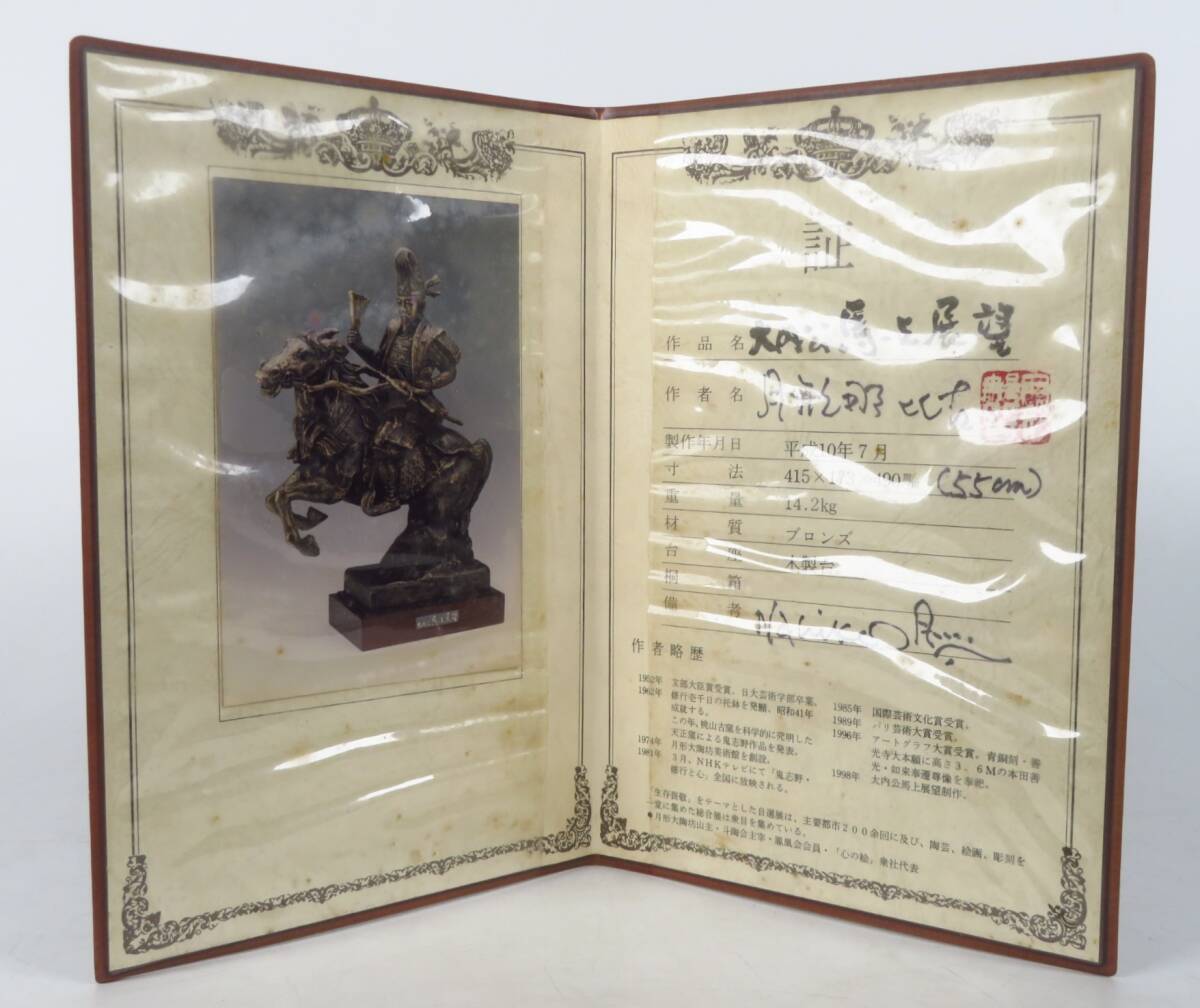 証
作品名 大内公馬上展望
作者名 月形那比古
製作年月日 平成10年7月
寸法 415×173×490㎜ (55cm)
重量 14.2kg
材質 ブロンズ
台座 木製台
桐箱
備考
作者略歴
1952年 文部大臣賞受賞。日大芸術学部卒業。
1962年 修行壱千日の托鉢を発願、昭和41年
成就する。
この年、桃山古窯を科学的に発明した
天正窯による鬼志野作品を発表。
1974年 月形大陶坊美術館を創設。
1981年 3月、NHKテレビにて「鬼志野・
修行と心」全国に放映される。
1985年 国際芸術文化賞受賞。
1989年 パリ芸術大賞受賞。
1996年 アートグラフ大賞受賞。青銅刻・善
光寺大本願に高さ3.6Mの本田善
光・如来奉遷尊像を奉祀。
1998年 大内公馬上展望制作。
「生存喜敬」をテーマとした自選展は、主要都市200余回に及び、陶芸、絵画、彫刻を
一堂に集めた総合展は衆目を集めている。
●月形大陶坊山主・斗陶会主宰・鳳凰会会員・「心の絵」衆社代表